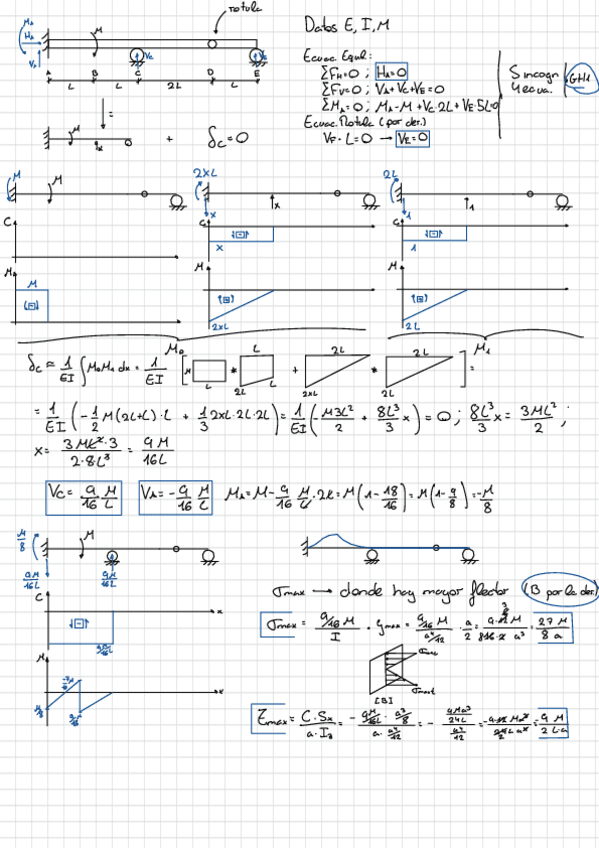 rotula
Datos E, I, M
M_A
H_A
V_A
M
V_C
V_E
A B C D E
L L 2L L
Ecuac. Equil:
ΣF_H=0 ; H_A=0
ΣF_V=0 ; V_A+V_C+V_E=0
ΣM_A=0 ; M_A-M+V_C·2L+V_E·5L=0
Ecuac. Rotula (por der.)
V_E·L=0 → V_E=0
5 incogn
4 ecua.
GH1
=
M
x
+ δc=0
M M
2xL
x x
2L
1 1
C C C
[-] x [-] 1
M M M
M
(-) (+) 2xL (+) 2L
M₀ M₁
δc = 1/EI ∫M₀M₁ dx = 1/EI [ M L * L 2L + 2L 2xL * 2L 2L ] =
= 1/EI (-1/2 M(2L+L)·L + 1/3 2xL·2L·2L) = 1/EI (-M3L²/2 + 8L³/3 x) = 0 ; 8L³/3 x = 3ML²/2 ;
x = 3ML²·3/2·8L³ = 9M/16L
V_C = 9/16 M/L V_A = -9/16 M/L M_A = M-9/16 M/L·2L = M(1-18/16) = M(1-9/8) = -M/8
M/8
M
9M/16L 9M/16L
C
[-]
x
9M/16L
M
x
M/8
σmax → donde hay mayor flector (B por la der.)
σmax = 9/16 M/I · ymax = 9/16 M/a⁴/12 · a/2 = 27/8 M/a
σmax
σmax
[B]
τmax = C·Sx/a·Iz = -9M/16L · a³/8 / a·a⁴/12